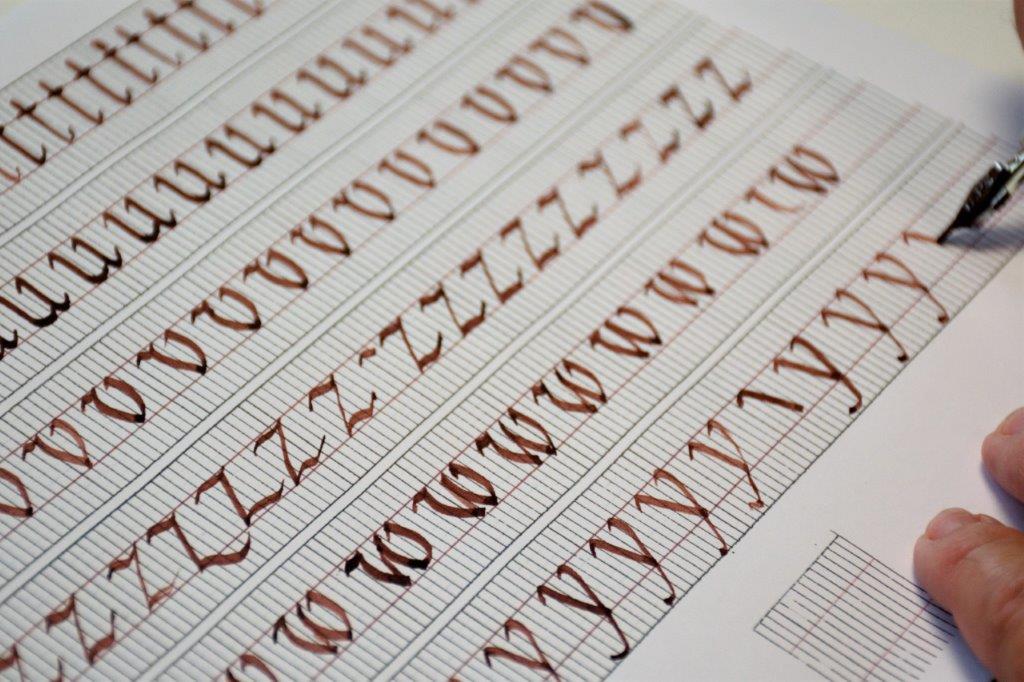 ttttttttt
uuuuuuuuuu
vvvvvvvvvvvvvv
zzzzzz zzzzzzzzz
wwwwwwww w
yyyyy yyy